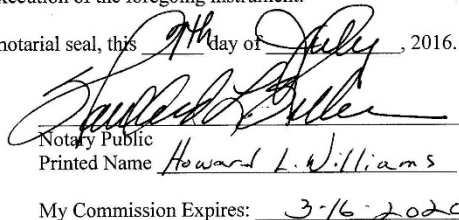 execution of the foregoing instrument.
notarial seal, this day of July, 2016.
Notary Public
Printed Name Howard L. Williams
My Commission Expires: 3-16-2020